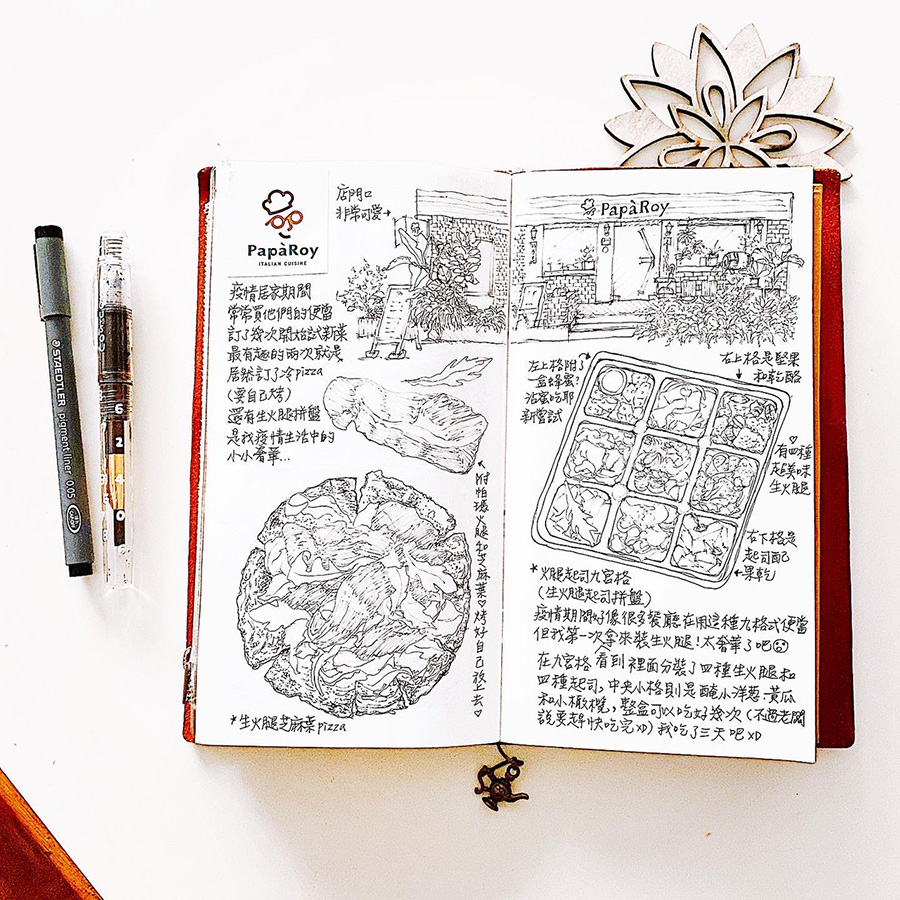 PapàRoy
ITALIAN CUISINE
店門口
非常可愛→
疫情居家期間
常常買他們的便當
訂了幾次開始試新菜
最有趣的兩次就是
居然訂了冷pizza
(要自己烤)
還有生火腿拼盤
是我疫情生活中的
小小奢華...
附帕瑪火腿和芝麻葉♡烤好自己放上去♡
*生火腿芝麻葉pizza
PapàRoy
左上格附了
一盒蜂蜜?
沾蜜吃耶
新嘗試
右上格是堅果
和乾酪
♡
有四種
超美味
生火腿
右下格是
起司配
果乾
*火腿起司九宮格
(生火腿起司拼盤)
疫情期間好像很多餐廳在用這種九格式便當
但我第一次拿來裝生火腿!太奢華了吧☹
看到
在九宮格裡面分裝了四種生火腿和
四種起司,中央小格則是醃小洋蔥、黃瓜
和小橄欖,整盒可以吃好幾次(不過老闆
說要趕快吃完xD)我吃了三天吧xD
STAEDTLER
pigment liner 0.05
6
2
4
0